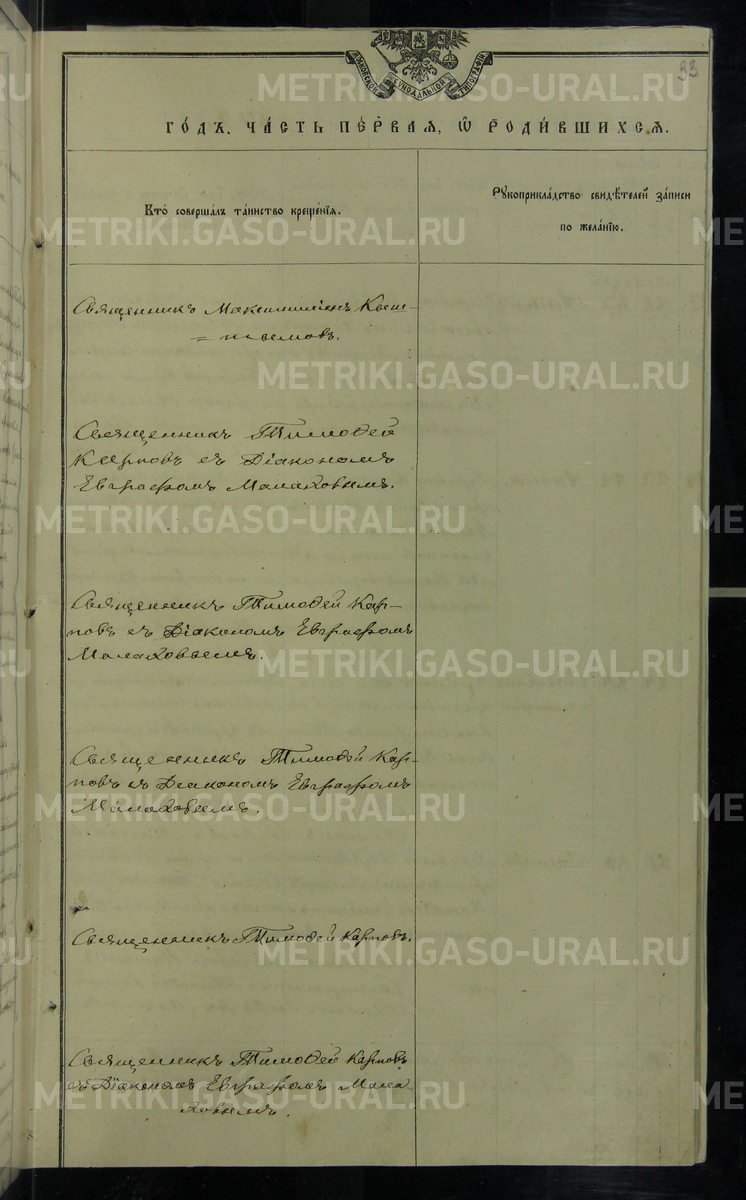 МОСКОВСКОЙ СѴНОДАЛЬНОЙ ТИПОГРАФІИ
93
ГО́ДЪ, ЧА́СТЬ ПЕ́РВАЯ, Ѡ҆ РОДИ́ВШИХСЯ.
Кто̀ соверша́лъ та́инство креще́нїя.
Рꙋкоприкла́дство свидѣ́телей за́писи
по жела́нїю.
Священникъ Максимилiанъ
Священникъ Тимоѳей
Карповъ съ Діакономъ
Евграфомъ Малаховымъ.
Священникъ Тимоѳей Кар–
повъ съ Діакономъ Евграфомъ
Малаховымъ.
Священникъ Тимоѳей Кар–
повъ съ Діакономъ Евграфомъ
Малаховымъ.
Священникъ Тимоѳей Карповъ.
Священникъ Тимоѳей Карповъ
съ Діакономъ Евграфомъ Мала
ховымъ.
METRIKI.GASO-URAL.RU